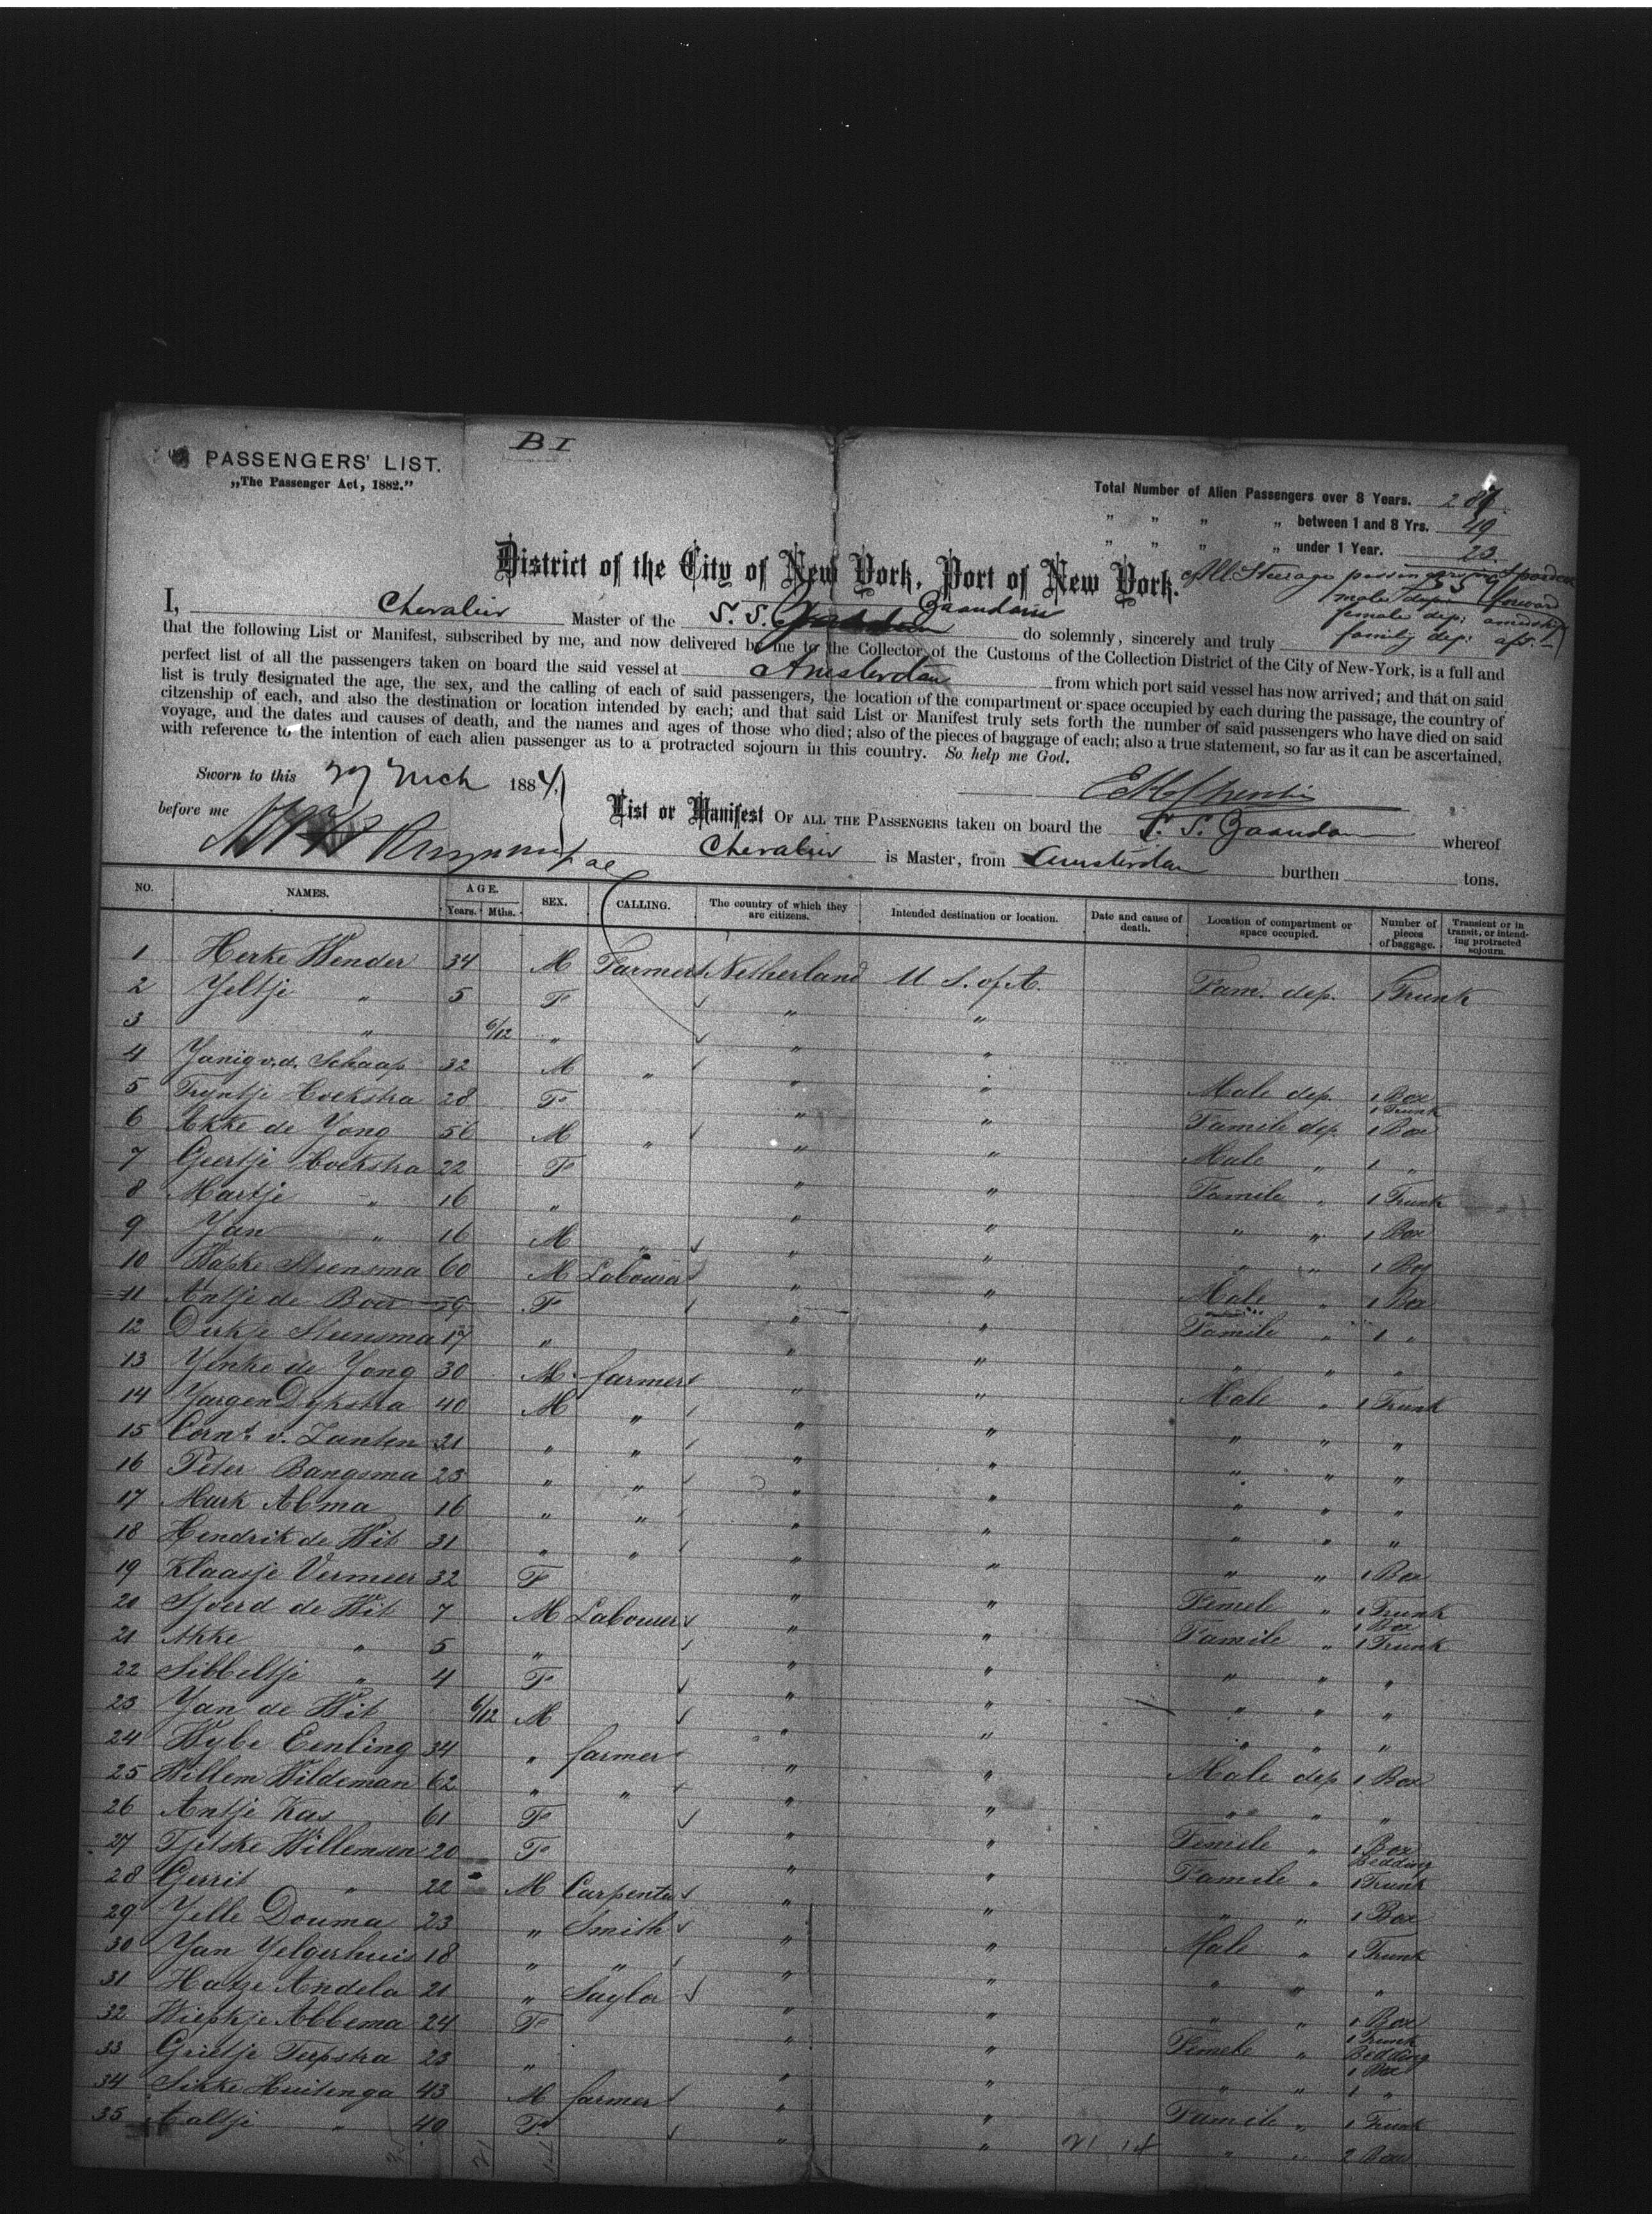 B I
PASSENGERS' LIST.
„The Passenger Act, 1882."
Total Number of Alien Passengers over 8 Years. 287
„ „ „ „ between 1 and 8 Yrs. 49
„ „ „ „ under 1 Year. 23
District of the City of New York, Port of New York.
All Steerage passengers
male dep: forward
female dep: amidship
family dep: aft.
I, Chevalier Master of the S. S. Zaandam do solemnly, sincerely and truly
that the following List or Manifest, subscribed by me, and now delivered by me to the Collector of the Customs of the Collection District of the City of New-York, is a full and
perfect list of all the passengers taken on board the said vessel at Amsterdam from which port said vessel has now arrived; and that on said
list is truly designated the age, the sex, and the calling of each of said passengers, the location of the compartment or space occupied by each during the passage, the country of
citzenship of each, and also the destination or location intended by each; and that said List or Manifest truly sets forth the number of said passengers who have died on said
voyage, and the dates and causes of death, and the names and ages of those who died; also of the pieces of baggage of each; also a true statement, so far as it can be ascertained,
with reference to the intention of each alien passenger as to a protracted sojourn in this country. So help me God.
Sworn to this 27 Mch 1884,
before me
List or Manifest OF ALL THE PASSENGERS taken on board the S. S. Zaandam whereof
Chevalier is Master, from Amsterdam burthen tons.
NO. NAMES. AGE. Years. Mths. SEX. CALLING. The country of which they are citizens. Intended destination or location. Date and cause of death. Location of compartment or space occupied. Number of pieces of baggage. Transient or in transit, or intending protracted sojourn.
1 Herke Wender 34 M Farmer Netherland U S. of A. Fam. dep. 1 Trunk
2 Yeltje „ 5 F „ „
3 „ 6/12 „ „ „
4 Yanig v.d. Schaap 32 M „ „ „ Male dep. 1 Box
5 Tryntje Hoekstra 28 F „ „ Famile dep 1 Trunk 1 Box
6 Akke de Yong 56 M „ „ „ Male „ 1 „
7 Geertje Hoekstra 22 F „ „ Famile „ 1 Trunk
8 Martje „ 16 „ „ „ „ „ 1 Box
9 Yan „ 16 M „ „ „ „ „ 1 Box
10 Wapke Steensma 60 M Labourer „ „ Male „ 1 Box
11 Antje de Boer 59 F „ „ Famile „ 1 „
12 Dirkje Steensma 17 „ „ „ „ „ „
13 Yenke de Yong 30 M farmer „ „ Male „ 1 Trunk
14 Yurgen Dykstra 40 M „ „ „ „ „ „
15 Corns. v. Zanten 21 „ „ „ „ „ „ „
16 Peter Bangsma 23 „ „ „ „ „ „ „
17 Mark Abma 16 „ „ „ „ „ „ „
18 Hendrik de Wit 31 „ „ „ „ „ „ 1 Box
19 Klaasje Vermeer 32 F „ „ Femele „ 1 Trunk
20 Sjoerd de Wit 7 M Labourer „ „ Famile „ 1 Box 1 Trunk
21 Akke „ 5 „ „ „ „ „ „
22 Sibbeltje „ 4 F „ „ „ „ „
23 Yan de Wit 6/12 M „ „ „ „ „
24 Wybe Eenling 34 „ farmer „ „ Male dep 1 Box
25 Willem Wildeman 62 „ „ „ „ „ „ „
26 Antje Kas 61 F „ „ Femele „ 1 Box Bedding
27 Tjetske Willemsen 20 F „ „ Famele „ 1 Trunk
28 Gerrit „ 22 M Carpenter „ „ „ „ 1 Box
29 Yelle Douma 23 „ Smith „ „ Male „ 1 Trunk
30 Yan Yelgerhuis 18 „ „ „ „ „ „ „
31 Hatze Andela 21 „ Saylor „ „ „ „ 1 Box
32 Wiepkje Abbema 24 F „ „ Femele „ 1 Trunk Bedding
33 Grietje Terpstra 23 „ „ „ „ „ 1 Box 1 „
34 Sikke Huitenga 43 M farmer „ „ Famile „ 1 Trunk
35 Aaltje „ 40 F „ „ „ „ 2 Box
21 14